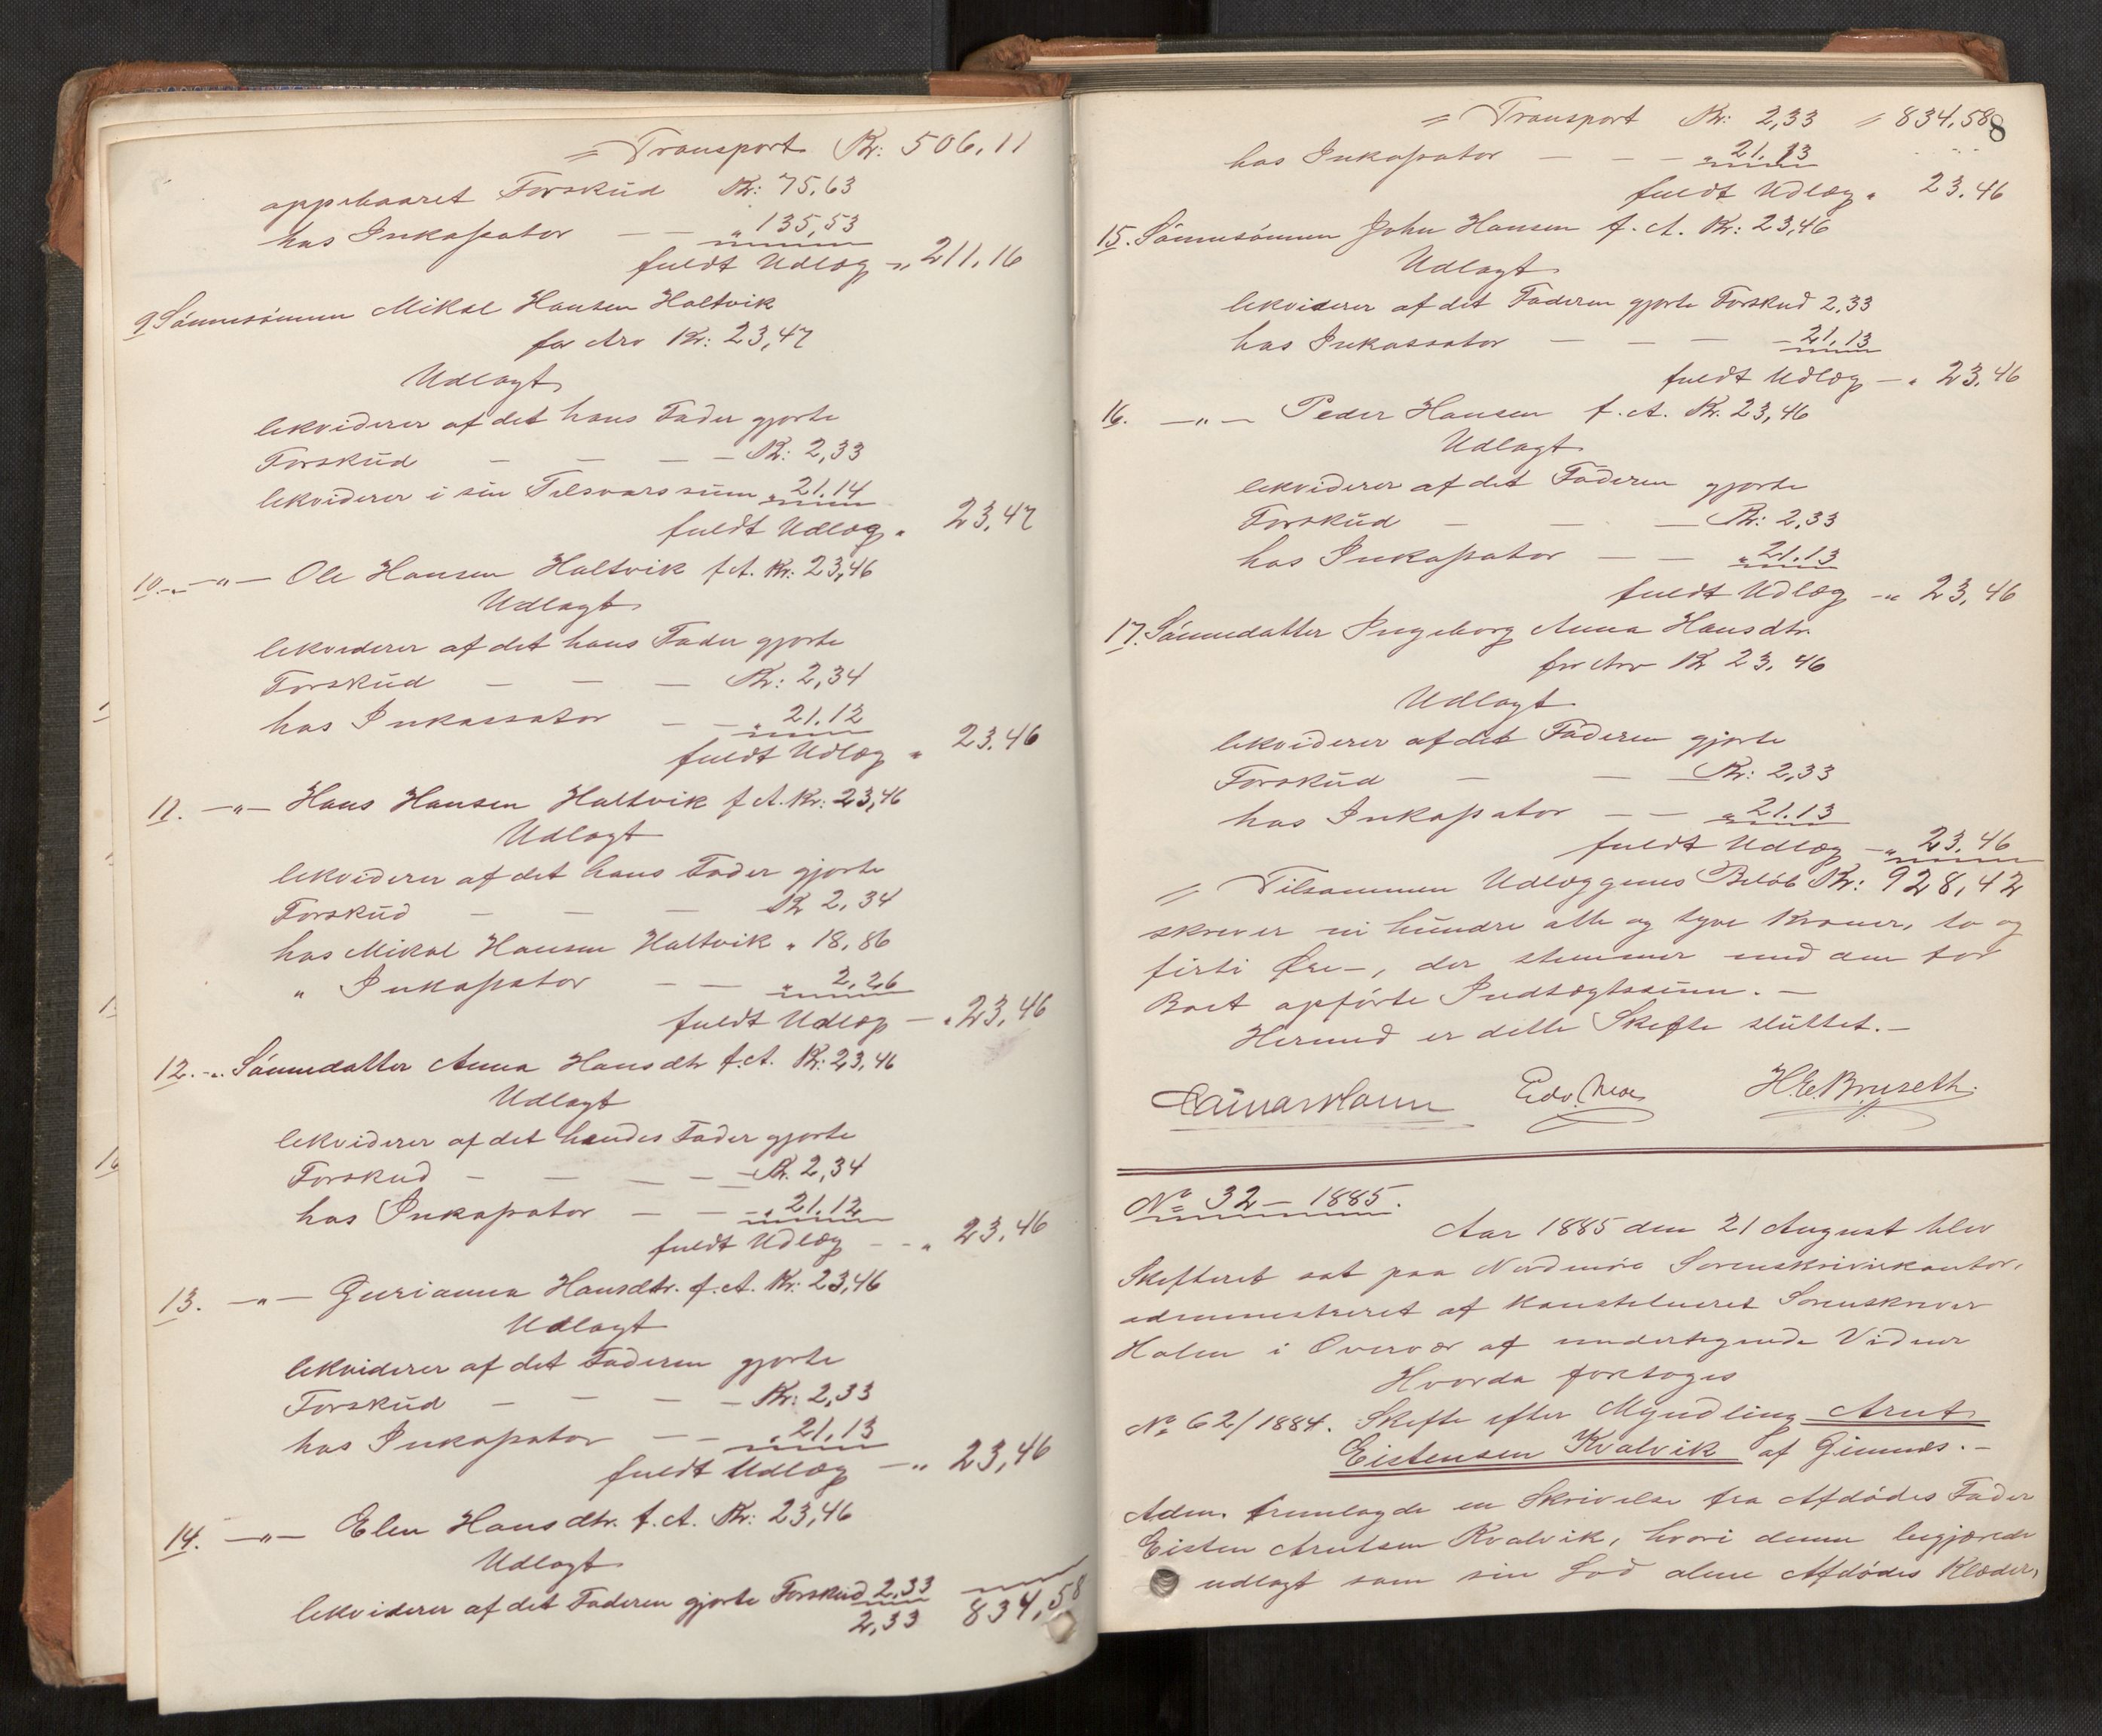 = Transport Kr: 506.11
oppebaaret Forskud Kr: 75.63
hos Inkassator — — „ 135,53
fuldt Udlæg -„ 211.16
9 Sønnesønnen Mikal Hansen Haltvik
for Arv Kr: 23,47
Udlagt
lekviderer af det hans Fader gjorte
Forskud — — — — Kr: 2,33
lekviderer i sin Tilsvarssum „ 21.14
fuldt Udlæg „ 23.47
10. -„- —„— Ole Hansen Haltvik f.A. Kr: 23,46
Udlagt
lekviderer af det hans Fader gjorte
Forskud — — — Kr: 2,34
hos Inkassator — — „ 21.12
fuldt Udlæg „ 23.46
11. —„— Hans Hansen Haltvik f.A. Kr: 23,46
Udlagt
lekviderer af det hans Fader gjorte
Forskud — — — Kr 2,34
hos Mikal Hansen Haltvik „ 18,86
„ Inkassator — — „ 2,26
fuldt Udlæg — „ 23,46
12. -„ Sønnedatter Anna Hansdtr f.A. Kr: 23,46
Udlagt
lekviderer af det hendes Fader gjorte
Forskud — — — — Kr. 2,34
hos Inkassator — — -„ 21.12
fuldt Udlæg — - „ 23,46
13. —„— Gurianna Hansdtr. f.A. Kr: 23,46
Udlagt
lekviderer af det Faderen gjorte
Forskud — — — — Kr: 2,33
hos Inkassator — — „ 21,13
fuldt Udlæg —„ 23,46
14. —„— Elen Hansdtr. f.A. Kr: 23,46
Udlagt
lekviderer af det Faderen gjorte Forskud 2,33
2,33 834,58
= Transport Kr: 2,33 = 834,58
8
hos Inkassator — — — „ 21.13
fuldt Udlæg „ 23.46
15. Sønnesønnen John Hansen f.A. Kr: 23,46
Udlagt
lekviderer af det Faderen gjorte Forskud 2,33
hos Inkassator — — — — 21,13
fuldt Udlæg — „ 23,46
16. —„— Peder Hansen f.A. Kr. 23,46
Udlagt
lekviderer af det Faderen gjorte
Forskud — — — Kr: 2,33
hos Inkassator — — „ 21.13
fuldt Udlæg -„ 23,46
17. Sønnedatter Ingeborg Anna Hansdtr.
for Arv Kr 23,46
Udlagt
lekviderer af det Faderen gjorte
Forskud — — — Kr: 2,33
hos Inkassator — — „ 21.13
fuldt Udlæg —„ 23,46
= Tilsammen Udlæggenes Beløb Kr: 928,42
skriver ni hundre otte og tyve Kroner, to og
firti Øre –, der stemmer med den for
Boet opførte Indtægtssum. —
Hermed er dette Skifte sluttet. —
Edv. Moe H.E. Bruseth.
No 32 — 1885.
Aar 1885 den 21 August blev
Skifteret sat paa Nordmøre Sorenskriverkontor,
administreret af konstitueret Sorenskriver
Holm i Overvær af undertegnede Vidner
Hvorda foretoges
No 62/1884. Skifte efter Myndling Arnt
Eistensen Kvalvik af Gimnes. —
Adm. fremlagde en Skrivelse fra Afdødes Fader
Eisten Arntsen Kvalvik, hvori denne begjærede
udlagt som sin Lod alene Afdødes Klæder,